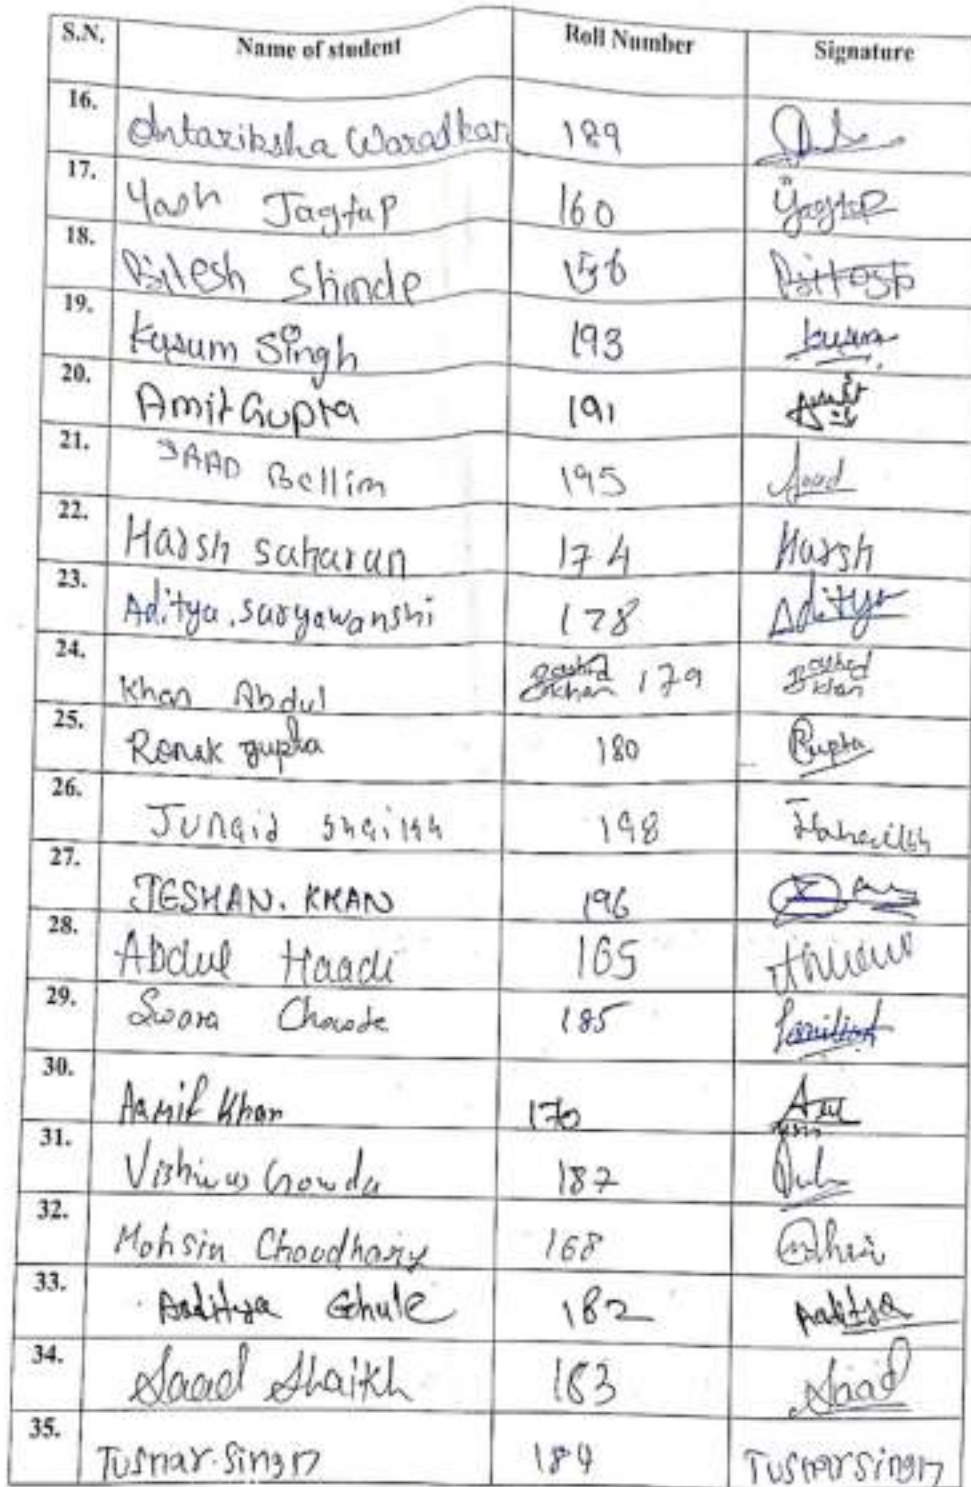 S.N. Name of student Roll Number Signature
16. Antariksha Waradkar 189
17. Yash Jagtap 160 Jagtap
18. Shinde 156
19. Kusum Singh 193 kusum
20. Amit Gupta 191 Amit
21. SAAD Bellim 195 Saad
22. Harsh Saharan 174 Harsh
23. Aditya . Suryawanshi 178 Aditya
24. Khan Abdul Rashid Khan 179 Rashid Khan
25. Ronak gupta 180 Gupta
26. Junaid Shaikh 198
27. JESHAN . KHAN 196
28. Abdul Haadi 165
29. Swara 185
30. Aamir Khan 170
31. Gowda 187
32. Mohsin Choudhary 168
33. Aaditya Ghule 182 Aaditya
34. Saad Shaikh 183 Saad
35. Tushar Singh 184 Tushar Singh